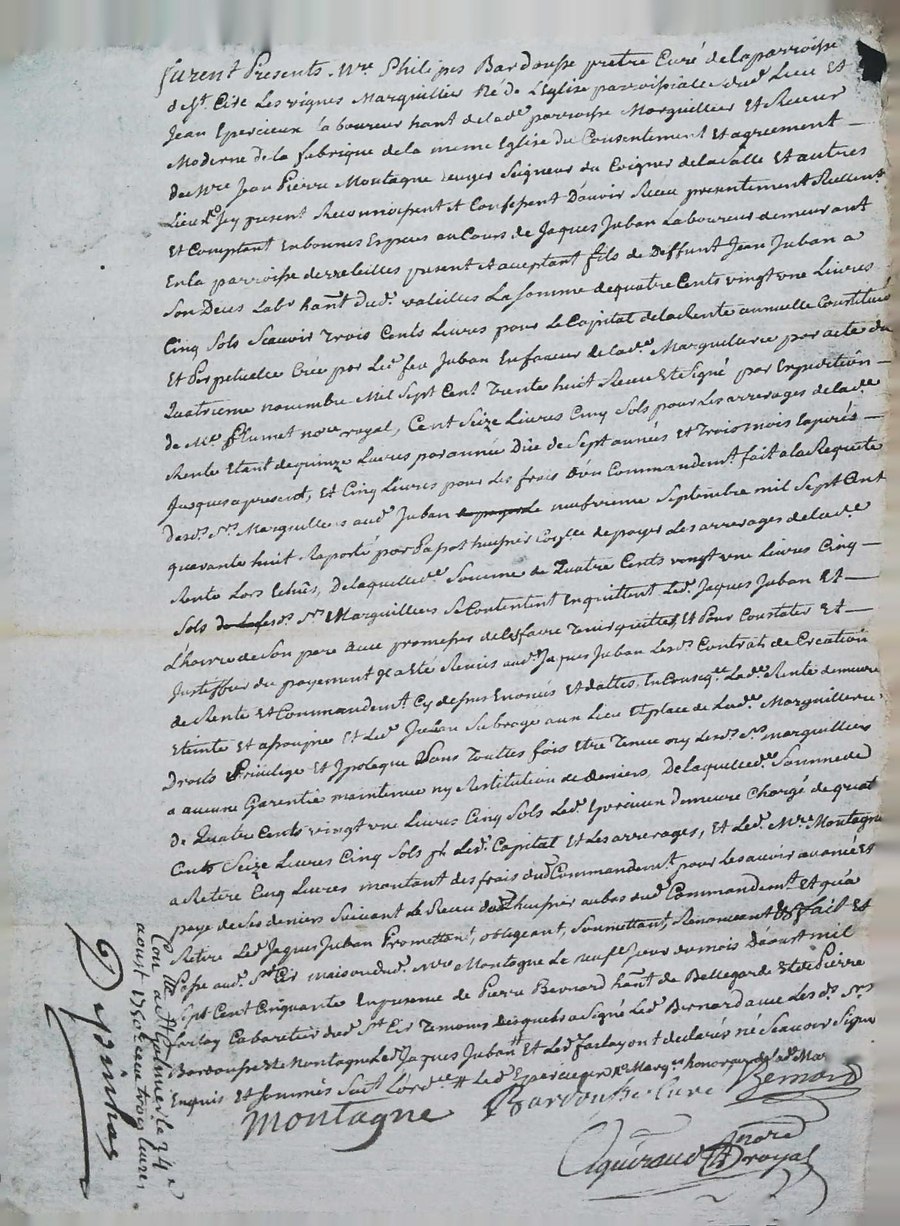 furent Presents Mre Philipes Bardousse pretre Curé de la parroisse
de St. Cire Les vignes Marguillier Né de L'Eglise parroissiale dud. Lieu Et
Jean Epercieux laboureur hant de lade parroisse Marguillier Et Receveur
Moderne de la fabrique de la meme Eglise du Consentement Et agreement
de Mre Jean Pierre Montagne Seigneur du Coigner de la Salle Et autres
Lieux Icy present Reconnoissent Et Confessent D'avoir Receu presentement Reellemt
Et Comptant En bonnes Especes au Cours de Jaques Juban Laboureur demeurant
En la parroisse de valeilles present et aceptant fils de Deffunt Jean Juban a
Son Deces Labr hant dud. valeilles La somme de quatre Cents vingt une Livres
Cinq Sols Scavoir trois Cents Livres pour Le Capital de la Rente annuelle Constituée
Et Perpetuelle Créé par Led. feu Juban En faveur de lade. Marguilerie par acte du
Quatrieme novembre Mil Sept Cent trente huit Receu Et Signé par Expedition
de Me. Plumet nore royal, Cent Seize Livres Cinq Sols pour Les arrerages de lade
Rente Etant de quinze Livres par année Düe de Sept années Et trois mois
Jusques a present, Et Cinq Livres pour Les frais d'un Commandemt. fait a la Requete
Desd. Srs. Marguilliers aud. Juban Le neufvieme Septembre mil Sept Cent
quarante huit Raporté par Papot huissier de payer Les arrerages de lade
Rente Lors Echüs, De laquelle de. Somme de Quatre Cents vingt une Livres Cinq
Sols Lesds. Srs Marguilliers Se Contentent En quittent Led. Jaques Juban Et
L'hoirie de Son pere avec promesses de Les faire tenir quittes Et Pour Constater Et
Justiffier du payement Il a Eté Remis aud. Jaques Juban Lesd. Contrat de Creation
de Rente Et Commandemt. Cy dessus Enoncés Et dattes, Lade. Rente demeure
Eteinte et assoupie Et Led. Juban Subrogé aux Lieu Et place de Lade. Marguillerie
Droits Privilege Et Ipoteque Sans touttes fois Etre Tenus ny Lesd. Srs. marguilliers
a aucune Garentie maintenue ny Restitution de deniers, De laquelle de. Somme de
de Quatre Cents vingt une Livres Cinq Sols Led. Epercieux demeure Chargé de quatre
Cents Seize Livres Cinq Sols pr. Led. Capital Et Les arrerages, Et Led. Mre. Montagne
a Retiré Cinq Livres montant des frais dud Commandemt. pour Les avoir avancé Et
payé de Ses deniers Suivant Le Receu dud huissier au bas dud. Commandemt. Et qu'a
Retiré Led. Jaques Juban Promettant, obligeant, Soumettant, Renonceant Et fait Et
Passé aud. St Cir maison dud. Mre Montagne Le neufe. Jour du mois D'aoust mil
Sept Cent Cinquante En presence de Pierre Bernard hant. de Bellegarde Et de Pierre
Cabaretier dud. St Cir Temoins Desquels a Signé Led. Bernard avec Les d. Srs
Bardousse Et Montagne Led. Jaques Juban Et Led. ont declarés né Scavoir Signer
Enquis Et Sommés Suivt. L'orde. # Led. Epercieux Margr. honoraire de lad. Mar.
Montagne Bardousse Curé Bernard
nore
royal
Con.llé a St Galmier le 24e
aoust 1750 Receu trois livres